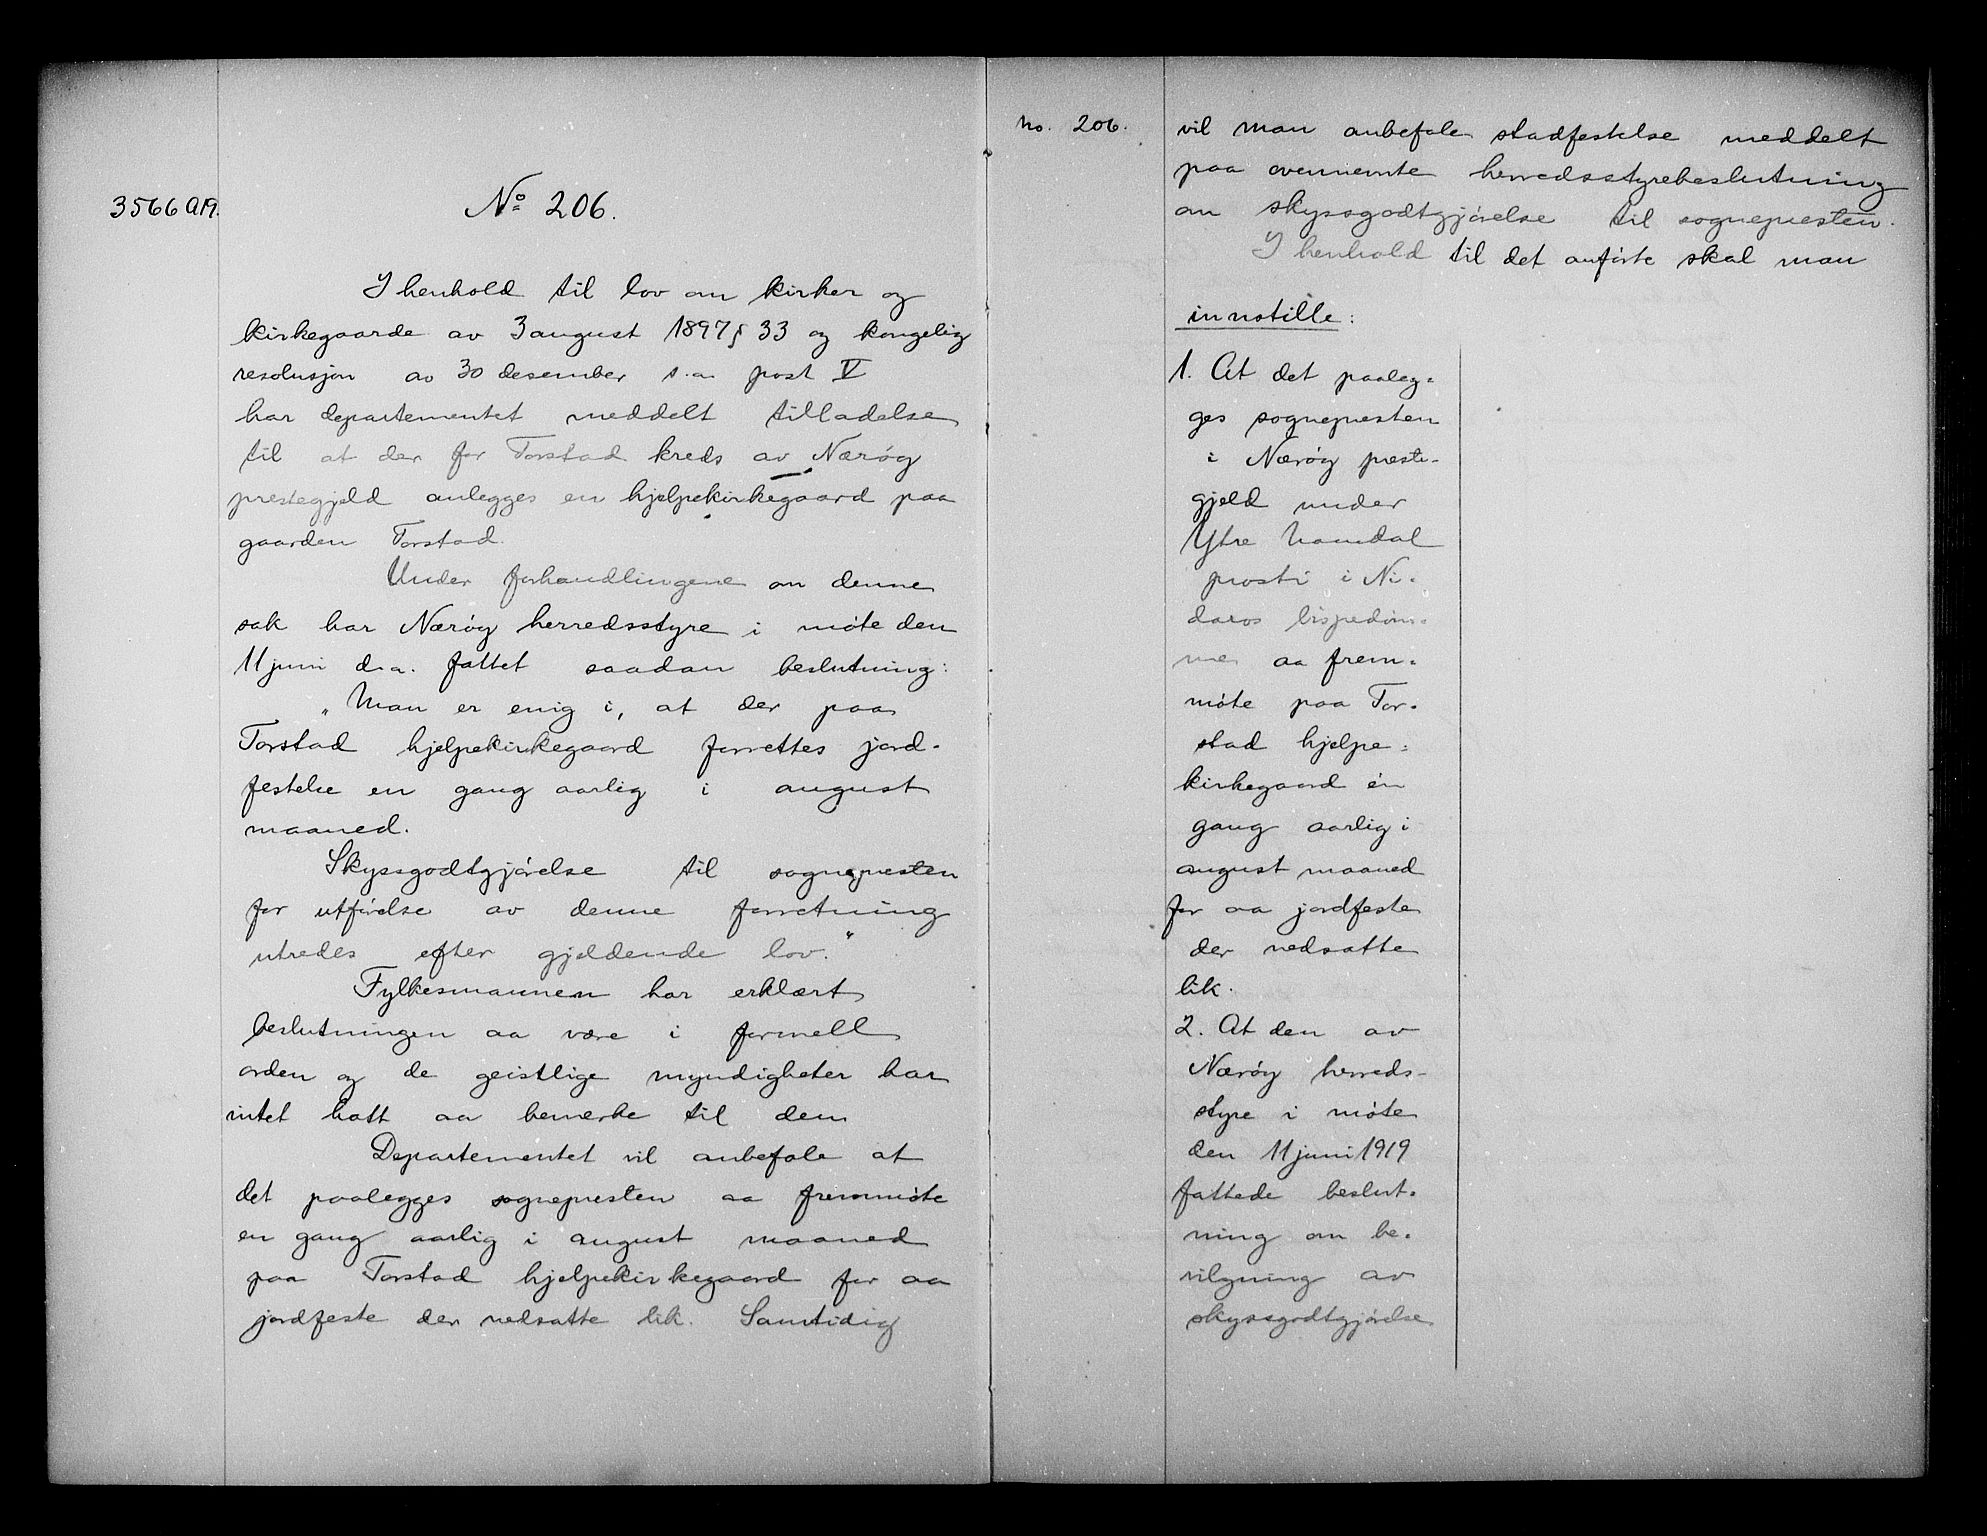 3566 A19.
No 206.
I henhold til lov om kirker og
kirkegaarde av 3 august 1897 § 33 og kongelig
resolusjon av 30 desember s.a. post V
har departementet meddelt tilladelse
til at der for Torstad kreds av Nærøy
prestegjeld anlegges en hjelpekirkegaard paa
gaarden Torstad.
Under forhandlingene om denne
sak har Nærøy herredsstyre i møte den
11 juni d.a. fattet saadan beslutning:
"Man er enig i, at der paa
Torstad hjelpekirkegaard forrettes jord-
festelse en gang aarlig i august
maaned.
Skyssgodtgjørelse til sognepresten
for utførelse av denne forretning
utredes efter gjeldende lov."
Fylkesmannen har erklært
beslutningen aa være i formell
orden og de geistlige myndigheter har
intet hatt aa bemerke til den
Departementet vil anbefale at
det paalegges sognepresten aa fremmøte
en gang aarlig i august maaned
paa Torstad hjelpekirkegaard for aa
jordfeste der nedsatte lik. Samtidig
No. 206.
vil man anbefale stadfestelse meddelt
paa ovennemte herredsstyrebeslutning
om skyssgodtgjørelse til sognepresten.
I henhold til det anførte skal man
innstille:
1. At det paaleg-
ges sognepresten
i Nærøy preste-
gjeld under
Ytre Namdal
prosti i Ni-
daros bispedøm-
me aa frem-
møte paa Tor-
stad hjelpe-
kirkegaard én
gang aarlig i
august maaned
for aa jordfeste
der nedsatte
lik.
2. At den av
Nærøy herreds-
styre i møte
den 11 juni 1919
fattede beslut-
ning om be-
vilgning av
skyssgodtgjørelse